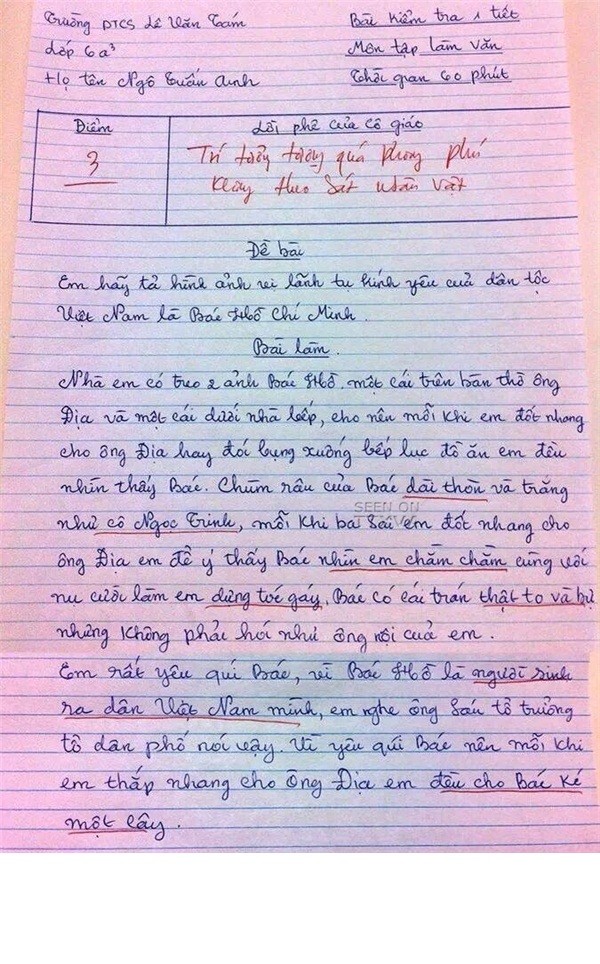 Trường PTCS Lê Văn Tám
Bài kiểm tra 1 tiết
Lớp 6a³
Môn tập làm văn
Họ tên Ngô Tuấn Anh
Thời gian 60 phút
Điểm
Lời phê của cô giáo
3
Trí tưởng tượng quá phong phú
không theo sát nhân vật
Đề bài
Em hãy tả hình ảnh vị lãnh tụ kính yêu của dân tộc
Việt Nam là Bác Hồ Chí Minh.
Bài làm.
Nhà em có treo 2 ảnh Bác Hồ. một cái trên bàn thờ ông
Địa và một cái dưới nhà bếp, cho nên mỗi khi em đốt nhang
cho ông Địa hay đói bụng xuống bếp lục đồ ăn em đều
nhìn thấy Bác. Chùm râu của Bác dài thòn và trắng
SEEN ON
như cô Ngọc Trinh, mỗi khi ba sai em đốt nhang cho
ông Địa em để ý thấy Bác nhìn em chằm chằm cùng với
nụ cười làm em dựng toé gáy. Bác có cái trán thật to và bự
nhưng không phải hói như ông nội của em.
Em rất yêu quí Bác, vì Bác Hồ là người sinh
ra dân Việt Nam mình, em nghe ông Sáu tổ trưởng
tổ dân phố nói vậy. Vì yêu quí Bác nên mỗi khi
em thắp nhang cho Ông Địa em đều cho Bác ké
một cây.